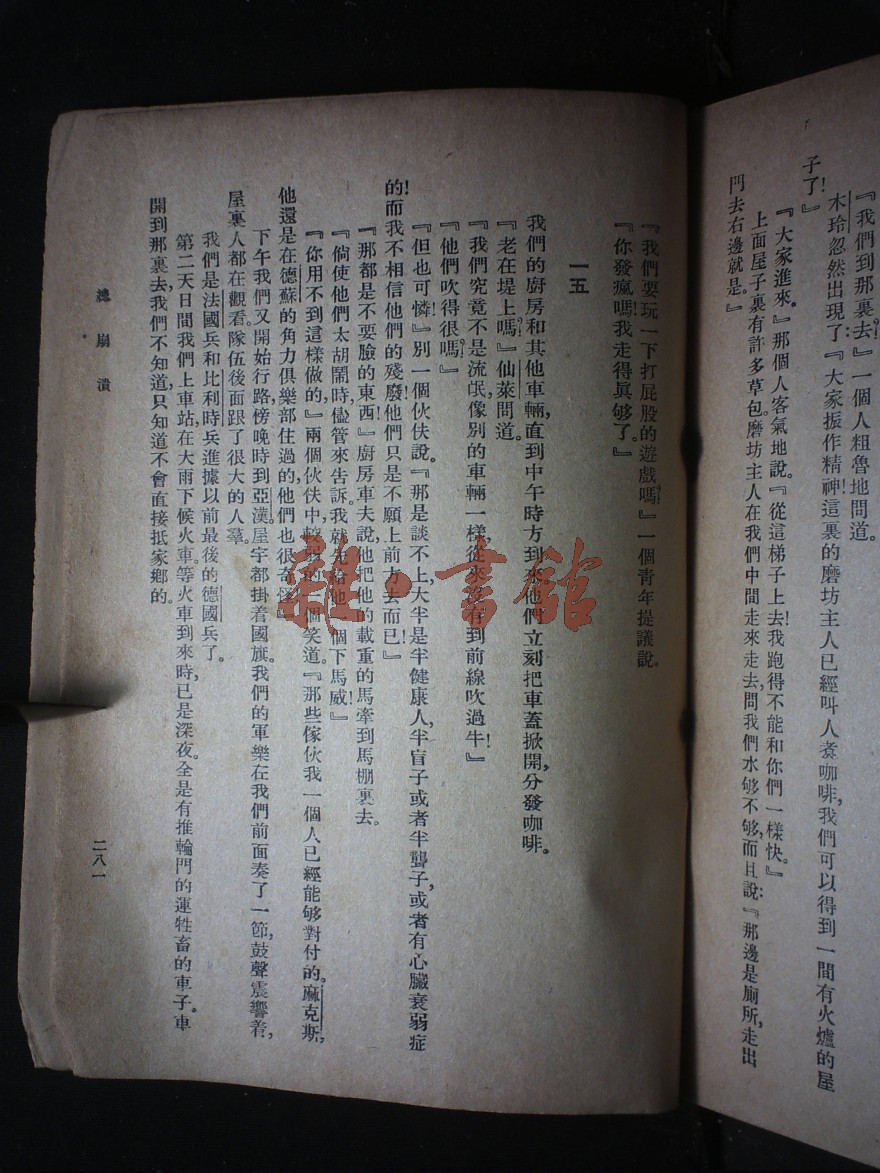 『我們到那裏去!』一個人粗魯地問道。
木玲忽然出現了:『大家振作精神!這裏的磨坊主人已經叫人煮咖啡,我們可以得到一間有火爐的屋
子了!』
『大家進來。』那個人客氣地說。『從這梯子上去!我跑得不能和你們一樣快。』
上面屋子裏有許多草包。磨坊主人在我們中間走來走去,問我們水够不够,而且說:『那邊是廁所,走出
門去右邊就是。』
『我們要玩一下打屁股的遊戲嗎?』一個青年提議說。
『你發瘋嗎?我走得眞够了。』
一五
我們的廚房和其他車輛,直到中午時方到來他們立刻把車蓋掀開分發咖啡。
『老在堤上嗎?』仙萊問道。
『我們究竟不是流氓,像別的車輛一樣,從來沒有到前線吹過牛!』
『他們吹得很嗎?』
『但也可憐!』別一個伙伕說。『那是談不上,大半是半健康人,半盲子或者半聾子,或者有心臟衰弱症
的!而我不相信他們的殘廢!他們只是不願上前方去而已!』
『那都是不要臉的東西!』廚房車夫說,他把他的載重的馬牽到馬棚裏去。
『倘使他們太胡鬧時,儘管來告訴。我就先給他一個下馬威!』
『你用不到這樣做的!』兩個伙伕中較弱的一個笑道。『那些傢伙我一個人已經能够對付的。麻克斯,
他還是在德蘇的角力俱樂部住過的,他們也很奇怪!』
下午我們又開始行路,傍晚時到亞漢。屋宇都掛着國旗。我們的軍樂在我們前面奏了一節,鼓聲震響着,
屋裏人都在觀看。隊伍後面跟了很大的人羣。
我們是法國兵和比利時兵進據以前最後的德國兵了。
第二天日間我們上車站在大雨下候火車。等火車到來時,已是深夜。全是有推輪門的運牲畜的車子。車
開到那裏去,我們不知道,只知道不會直接抵家鄉的。
總崩潰
二八一
雜·書舘